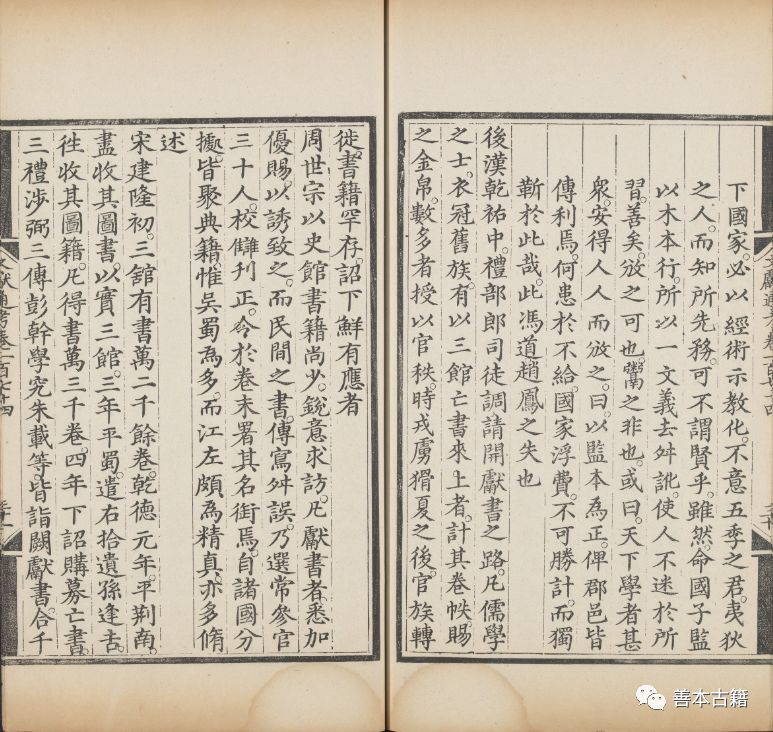 下國家必以經術示教化不意五季之君夷狄
之人而知所先務可不謂賢乎雖然命國子監
以木本行所以一文義去舛訛使人不迷於所
習善矣頒之可也鬻之非也或曰天下學者甚
衆安得人人而頒之曰以監本為正俾郡邑皆
傳利焉何患於不給國家浮費不可勝計而獨
靳於此哉此馮道趙鳳之失也
後漢乾祐中禮部郎司徒調請開獻書之路凡儒學
之士衣冠舊族有以三館亡書來上者計其卷帙賜
之金帛數多者授以官秩時戎虜猾夏之後官族轉
徙書籍罕存詔下鮮有應者
周世宗以史館書籍尚少銳意求訪凡獻書者悉加
優賜以誘致之而民間之書傳寫舛誤乃選常參官
三十人校讎刊正令於卷末署其名銜焉自諸國分
據皆聚典籍惟吳蜀為多而江左頗為精真亦多脩
述
宋建隆初三舘有書萬二千餘卷乾德元年平荆南
盡收其圖書以實三館三年平蜀遣右拾遺孫逢吉
徃收其圖籍凡得書萬三千卷四年下詔購募亡書
三禮涉弼三傳彭幹學究朱載等皆詣闕獻書合千
文獻通考卷一百七十四
善本古籍